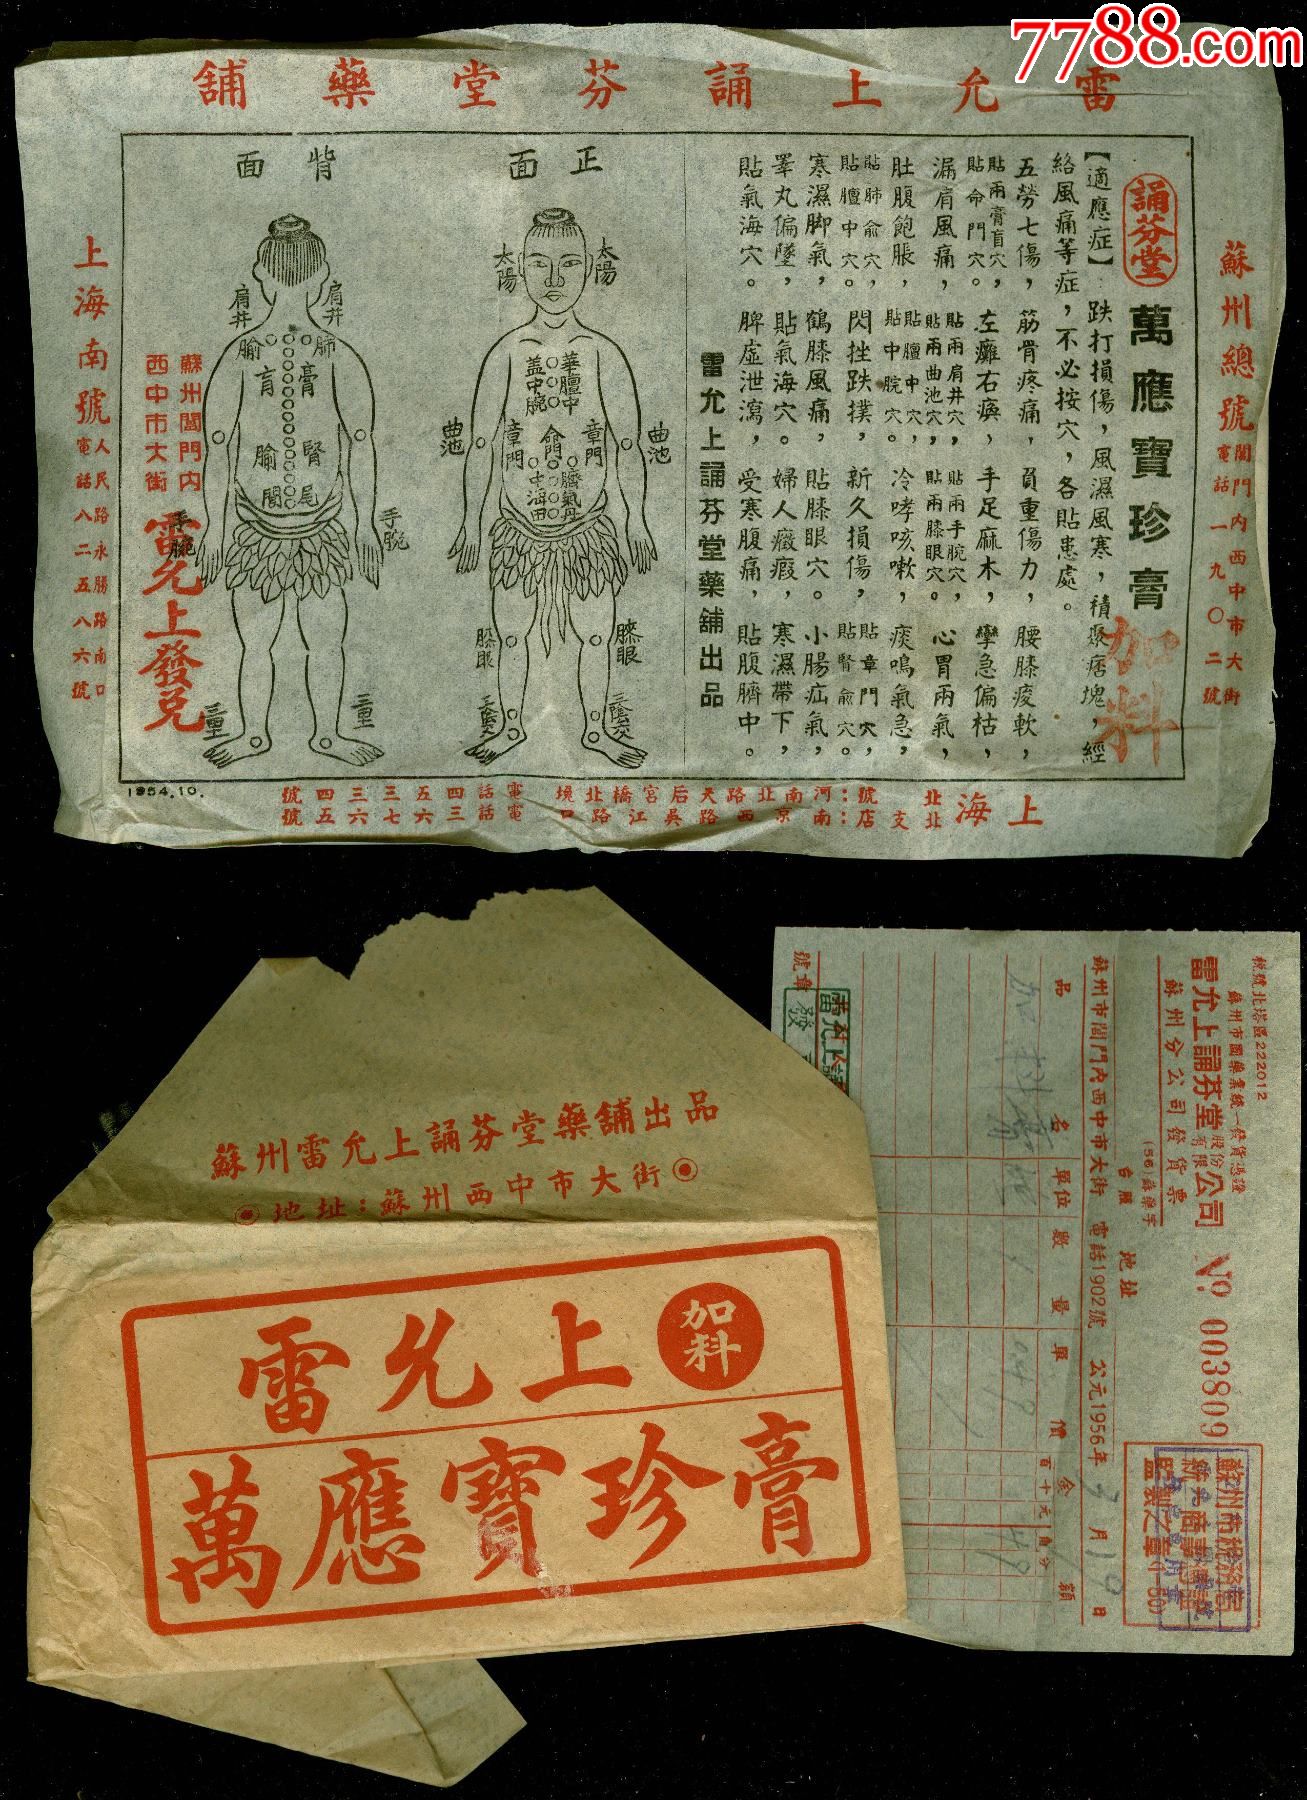 7788.com
雷允上誦芬堂藥舖
蘇州總號
閶門內西中市大街
電話一九〇二號
誦芬堂
萬應寶珍膏
加料
【適應症】跌打損傷，風濕風寒，積聚痞塊，經
絡風痛等症，不必按穴，各貼患處。
五勞七傷，筋骨疼痛，負重傷力，腰膝痠軟，
貼兩膏肓穴，貼命門穴。左癱右瘓，手足麻木，攣急偏枯，
漏肩風痛，貼兩肩井穴，貼兩曲池穴，貼兩手腕穴，貼兩膝眼穴。心胃兩氣，
肚腹飽脹，貼膻中穴，貼中脘穴。冷哮咳嗽，痰鳴氣急，
貼肺俞穴，貼膻中穴。閃挫跌撲，新久損傷，貼章門穴，貼腎俞穴。
寒濕脚氣，鶴膝風痛，貼膝眼穴。小腸疝氣，
睪丸偏墜，貼氣海穴。婦人癥瘕，寒濕帶下，
貼氣海穴。脾虛泄瀉，受寒腹痛，貼腹臍中。
雷允上誦芬堂藥舖出品
正面
太陽
太陽
華膻中
盖中腕
章門
章門
命門
臍氣丹
中海田
曲池
曲池
膝眼
膝眼
三陰交
三陰交
背面
肩井
肩井
肺
腧
膏
肓
腎
腧
尾
閭
手腕
手腕
三里
三里
蘇州閶門內
西中市大街
雷允上發兌
上海南號
人民路永勝路南口
電話八二五八六號
上海
北號：河南北路天后宮橋北堍 電話四五三三四號
北支店：南京西路吳江路口 電話三六七六五號
1954.10.
蘇州雷允上誦芬堂藥舖出品
地址：蘇州西中市大街
雷允上
加料
萬應寶珍膏
稅號北塔區222012
蘇州市國藥業統一發貨憑證
雷允上誦芬堂股份有限公司
蘇州分公司發貨票
(56)蘇藥字
№ 003809
台照
地址
蘇州市閶門內西中市大街 電話1902號 公元1956年 月 日
品名 單位 數量 單價 金額
百十元角分
加料膏
號章
發
蘇州市稅務局
監製之章